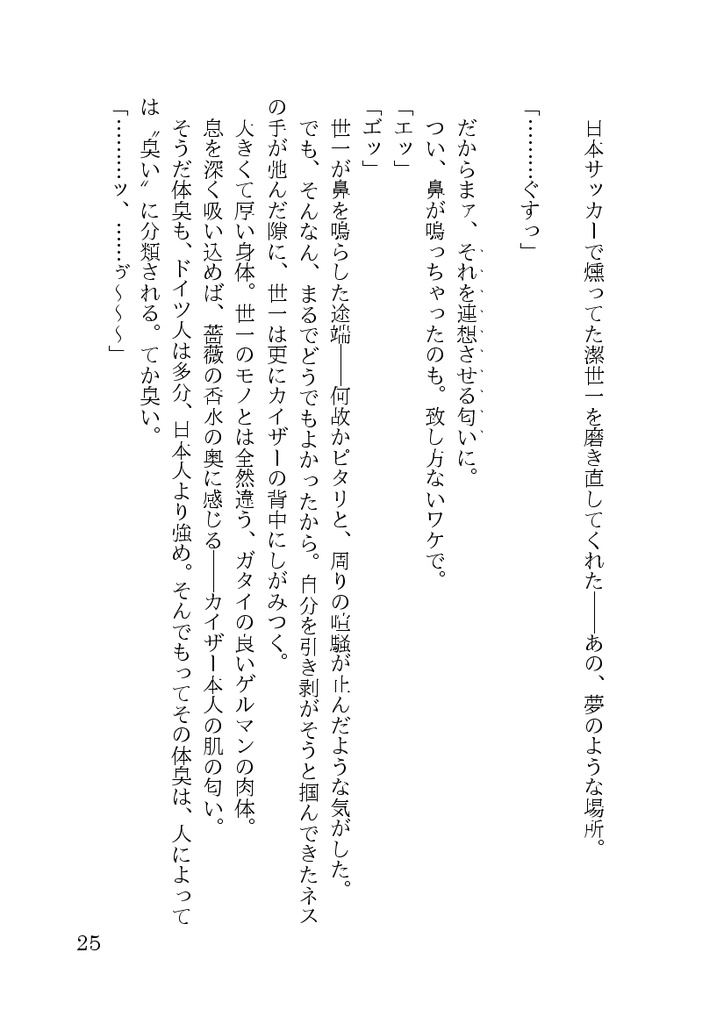 日本サッカーで燻ってた潔世一を磨き直してくれた――あの、夢のような場所。
「………ぐすっ」
だからまァ、それを連想させる匂いに。
つい、鼻が鳴っちゃったのも。致し方ないワケで。
「エッ」
「ヹッ」
世一が鼻を鳴らした途端――何故かピタリと、周りの喧騒が止んだような気がした。
でも、そんなん、まるでどうでもよかったから。自分を引き剥がそうと掴んできたネス
の手が弛んだ隙に、世一は更にカイザーの背中にしがみつく。
大きくて厚い身体。世一のモノとは全然違う、ガタイの良いゲルマンの肉体。
息を深く吸い込めば、薔薇の香水の奥に感じる――カイザー本人の肌の匂い。
そうだ体臭も、ドイツ人は多分、日本人より強め。そんでもってその体臭は、人によって
は〝臭い〟に分類される。てか臭い。
「………ッ、……ゔ～～～」
25